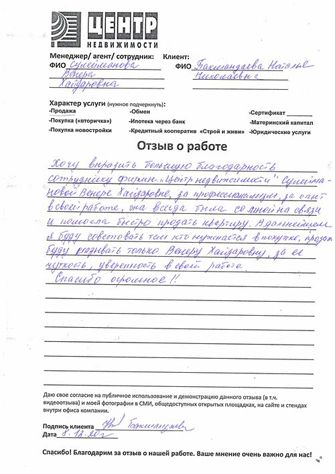 ЦЕНТР
НЕДВИЖИМОСТИ
Менеджер/ агент/ сотрудник: Клиент:
ФИО Сулейманова ФИО Бахмандаева Наталья
Венера Николаевна
Хайдаровна
Характер услуги (нужное подчеркнуть):
-Продажа -Обмен -Сертификат
-Покупка («вторичка») -Ипотека через банк -Материнский капитал
-Покупка новостройки -Кредитный кооператив «Строй и живи» -Юридические услуги
Отзыв о работе
Хочу выразить большую благодарность
сотруднику фирмы «Центр недвижимости» Сулейма-
новой Венере Хайдаровне, за профессионализм, за опыт
в своей работе, она всегда была со мной на связи
и помогла быстро продать квартиру. В дальнейшем
я буду советовать тем кто нуждается в покупке, продаж
буду только Венеру Хайдаровну, за её
чуткость, уверенность в свой работа
Спасибо огромное!!
Даю свое согласие на публичное использование и демонстрацию данного отзыва (в т.ч.
видеоотзыва) и моей фотографии в СМИ, общедоступных открытых площадках, на сайте и стендах
внутри офиса компании.
Подпись клиента
Дата
Спасибо! Благодарим за отзыв о нашей работе. Ваше мнение очень важно для нас!